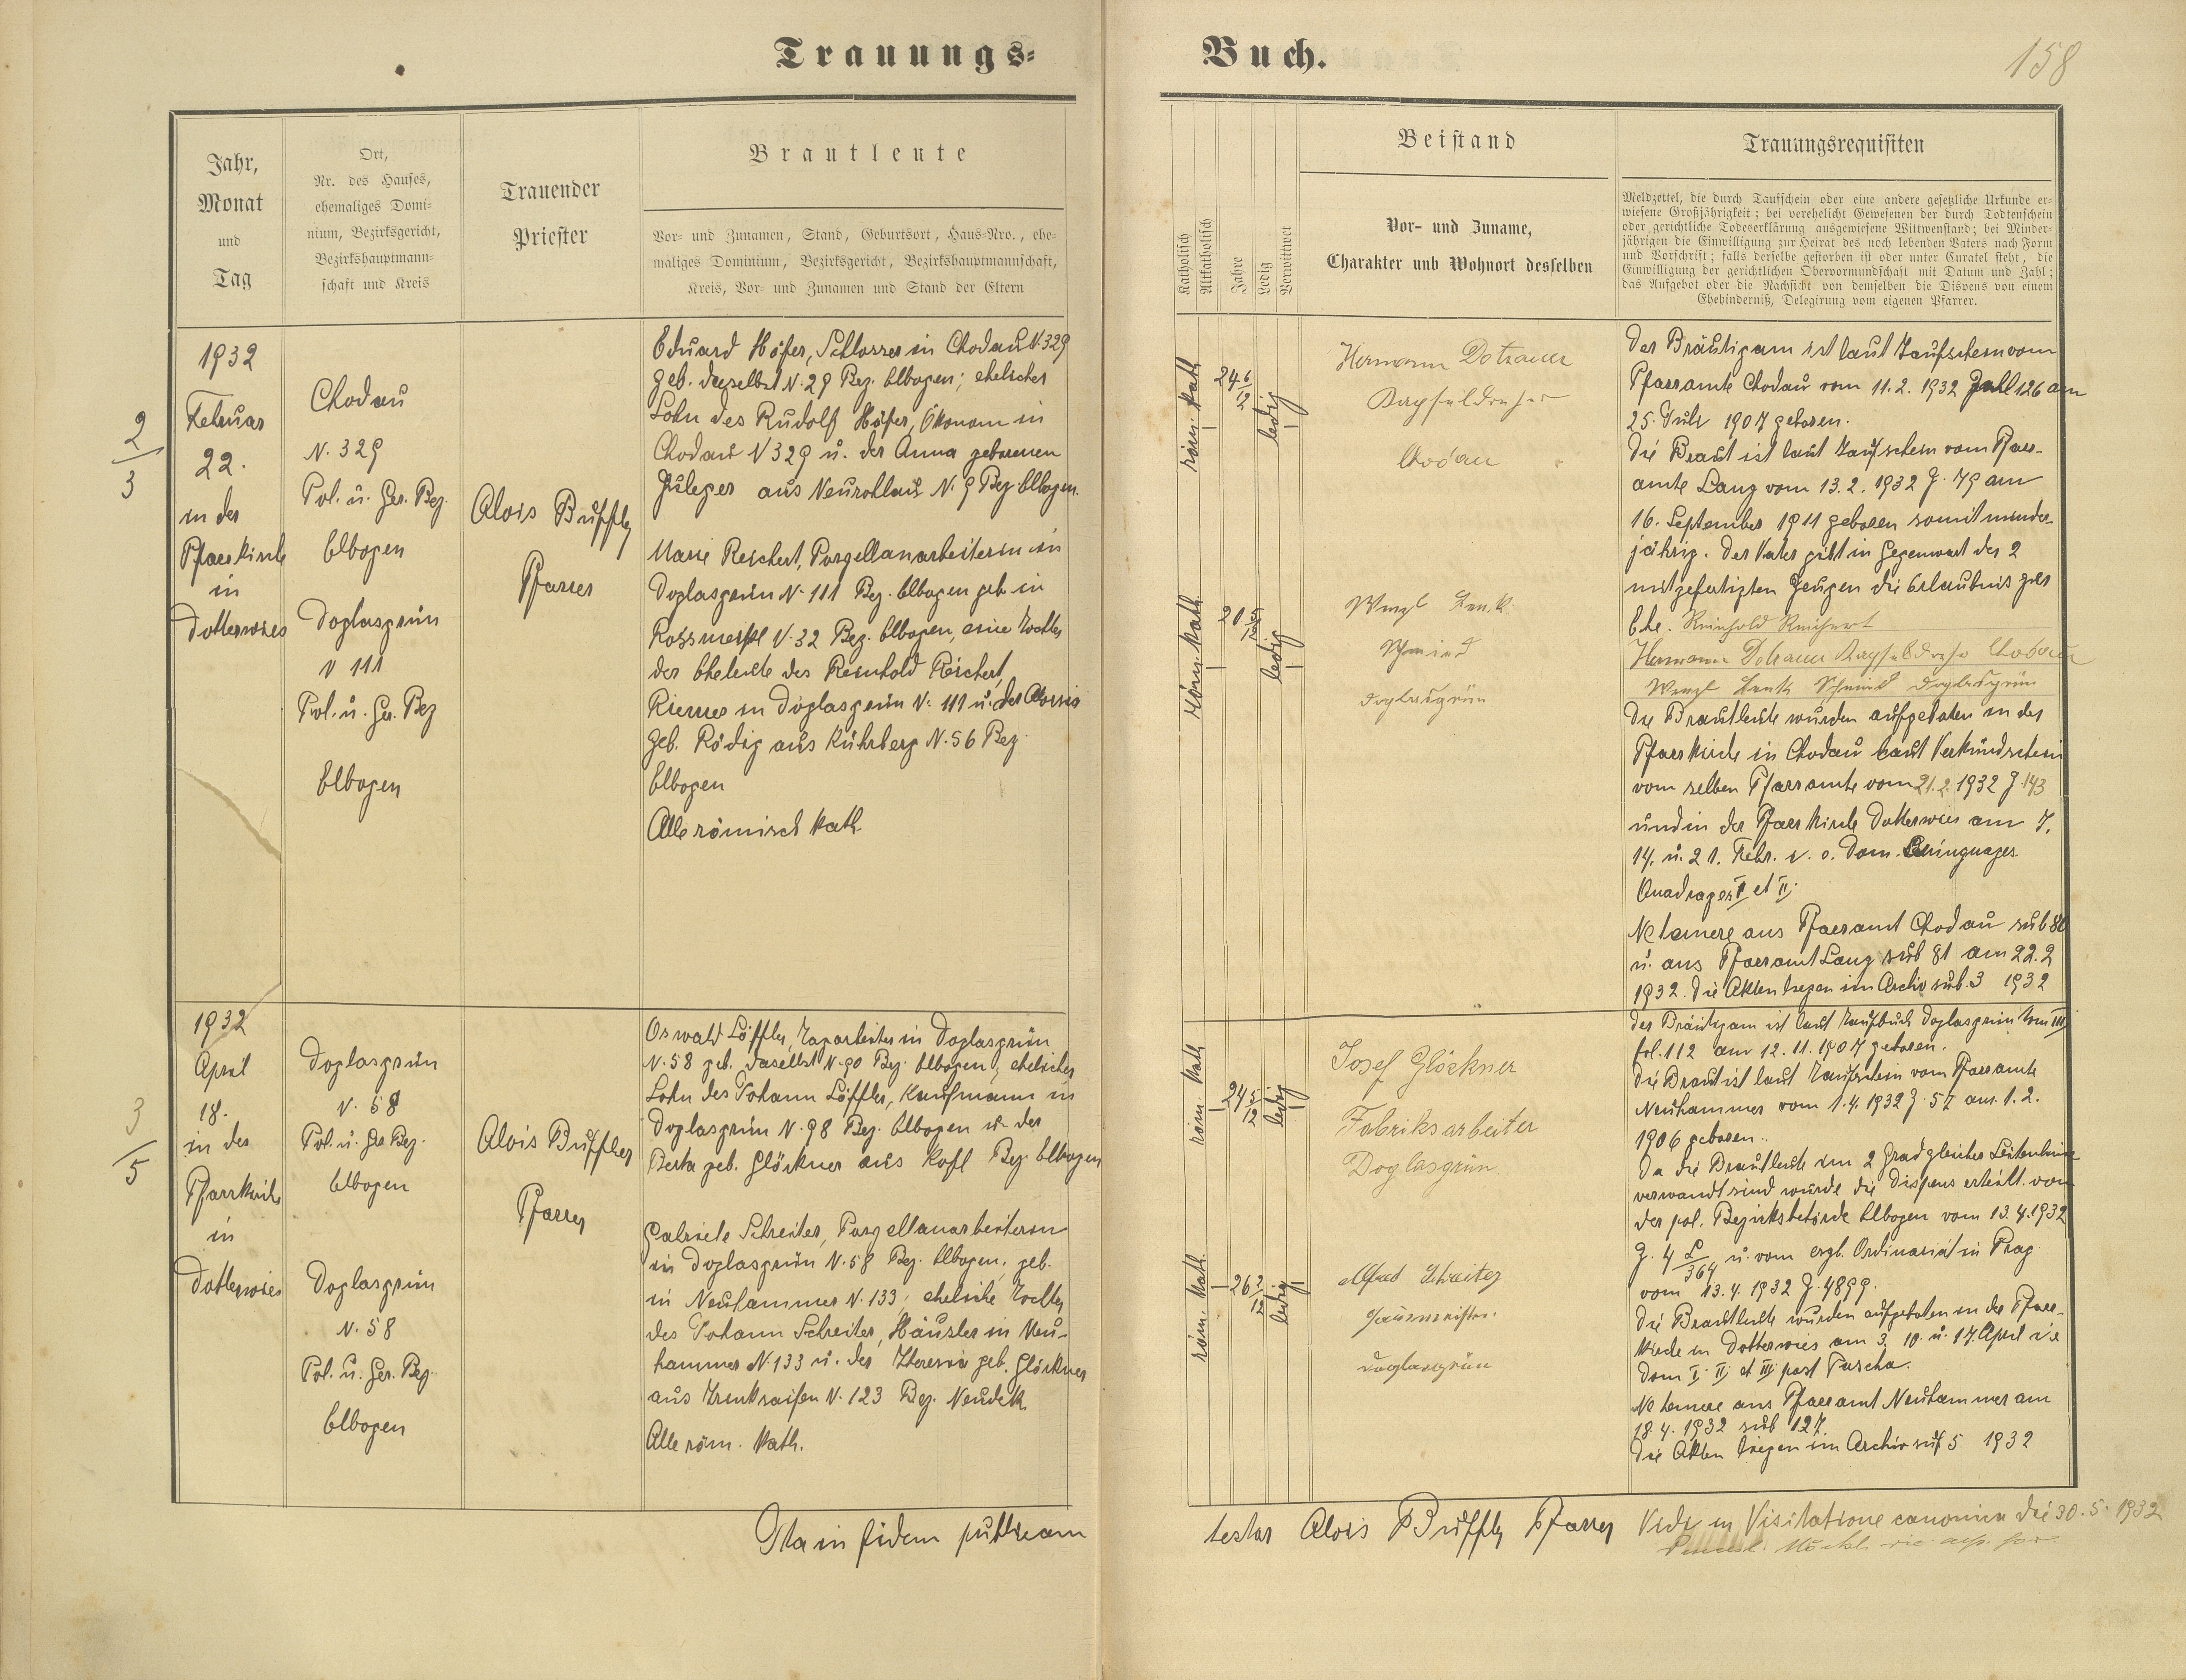 Trauungs-
Buch.
158
Jahr,
Monat
und
Tag
Ort,
Nr. des Hauses,
ehemaliges Domi-
nium, Bezirksgericht,
Bezirkshauptmann-
schaft und Kreis
Trauender
Priester
Brautleute
Vor- und Zunamen, Stand, Geburtsort, Haus-Nro., ehe-
maliges Dominium, Bezirksgericht, Bezirkshauptmannschaft,
Kreis, Vor- und Zunamen und Stand der Eltern
Katholisch
Altkatholisch
Jahre
Ledig
Verwittwet
Beistand
Vor- und Zuname,
Charakter und Wohnort desselben
Trauungsrequisiten
Meldzettel, die durch Taufschein oder eine andere gesetzliche Urkunde er-
wiesene Großjährigkeit; bei verehelicht Gewesenen der durch Todtenschein
oder gerichtliche Todeserklärung ausgewiesene Wittwenstand; bei Minder-
jährigen die Einwilligung zur Heirat des noch lebenden Vaters nach Form
und Vorschrift; falls derselbe gestorben ist oder unter Curatel steht, die
Einwilligung der gerichtlichen Obervormundschaft mit Datum und Zahl;
das Aufgebot oder die Nachsicht von demselben die Dispens von einem
Ehehinderniß, Delegirung vom eigenen Pfarrer.
2
3
1932
Februar
22.
in der
Pfarrkirche
in
Dotterwies
Chodau
N. 329
Pol. u. Ger. Bez.
Elbogen
Doglasgrün
N 111
Pol. u. Ger. Bez
Elbogen
Alois Buffler
Pfarrer
Eduard Höfer, Schlosser in Chodau N. 329
geb. daselbst N. 29 Bez. Elbogen; ehelicher
Sohn des Rudolf Höfer, Ökonom in
Chodau N 329 u. der Anna geborenen
aus Neurohlau N. 9 Bez. Elbogen.
Marie Reichert, Porzellanarbeiterin in
Doglasgrün N. 111 Bez. Elbogen geb. in
Rossmeisl N. 32 Bez. Elbogen, eine Tochter
der Eheleute des Reinhold Reichert,
Riemer in Doglasgrün N. 111 u. der Aloisia
geb. Rödig aus Kührberg N. 56 Bez.
Elbogen
Alle römisch kath.
röm. kath.
24 6/12
ledig
Hermann Dotzauer
Kapseldreher
Chodau
röm. kath.
20 5/12
ledig
Wenzl Lenk
Schmied
Doglasgrün
Der Bräutigam ist laut Taufschein vom
Pfarramte Chodau vom 11.2.1932 Zahl 126 am
25. Juli 1907 geboren.
Die Braut ist laut Taufschein vom Pfarr-
amte Lanz vom 13.2.1932 Z. 79 am
16. September 1911 geboren somit minder-
jährig. Der Vater gibt in Gegenwart der 2
mitgefertigten Zeugen die Erlaubnis zur
Ehe. Reinhold Reichert
Hermann Dotzauer Kapseldreher Chodau
Wenzl Lenk Schmied Doglasgrün
Die Brautleute wurden aufgeboten in der
Pfarrkirche in Chodau laut Verkündschein
vom selben Pfarramte vom 21.2.1932 Z. 143
und in der Pfarrkirche Dotterwies am 7.
14. u. 21. Febr. i. e. Dom. Quinquages.
Quadrages I et II.
Ne temere aus Pfarramt Chodau sub 80
u. aus Pfarramt Lanz sub 81 am 22.2
1932. Die Akten liegen im Archiv sub. 3 1932
3
5
1932
April
18.
in der
Pfarrkirche
in
Dotterwies
Doglasgrün
N. 58
Pol. u. Ger. Bez.
Elbogen
Doglasgrün
N. 58
Pol. u. Ger. Bez.
Elbogen
Alois Buffler
Pfarrer
Oswald Löffler, Tagarbeiter in Doglasgrün
N. 58 geb. daselbst N. 90 Bez. Elbogen; ehelicher
Sohn des Johann Löffler, Kaufmann in
Doglasgrün N. 98 Bez. Elbogen u. der
Berta geb. Glöckner aus Kofl Bez. Elbogen
Gabriele Schreiter, Porzellanarbeiterin
in Doglasgrün N. 58 Bez. Elbogen, geb.
in Neuhammer N. 133; eheliche Tochter
des Johann Schreiter, Häusler in Neu-
hammer N. 133 u. der Theresia geb. Glöckner
aus Trinkseifen N. 123 Bez. Neudek
Alle röm. kath.
röm. kath.
24 5/12
ledig
Josef Glöckner
Fabriksarbeiter
Doglasgrün
röm. kath.
26 2/12
ledig
Alfred Schreiter
Doglasgrün
Der Bräutigam ist laut Taufbuch Doglasgrün Tom III
fol. 112 am 12.11.1907 geboren.
Die Braut ist laut Taufschein vom Pfarramte
Neuhammer vom 1.4.1932 Z. 57 am 1.2.
1906 geboren.
Da die Brautleute im 2 Grad gleicher Seitenlinie
verwandt sind wurde die Dispens erteilt von
der pol. Bezirksbehörde Elbogen vom 13.4.1932
Z. 4 L/364 u. vom erzb. Ordinariat in Prag
vom 13.4.1932 Z. 4899.
Die Brautleute wurden aufgeboten in der Pfarr-
kirche in Dotterwies am 3. 10. u. 17. April i e
Dom I. II. et III. post Pascha.
Ne temere aus Pfarramt Neuhammer am
18.4.1932 sub 127.
Die Akten liegen im Archiv sub 5 1932
Ita in fidem publicam
testor Alois Buffler Pfarrer
Vidi in Visitatione canonica die 30.5.1932